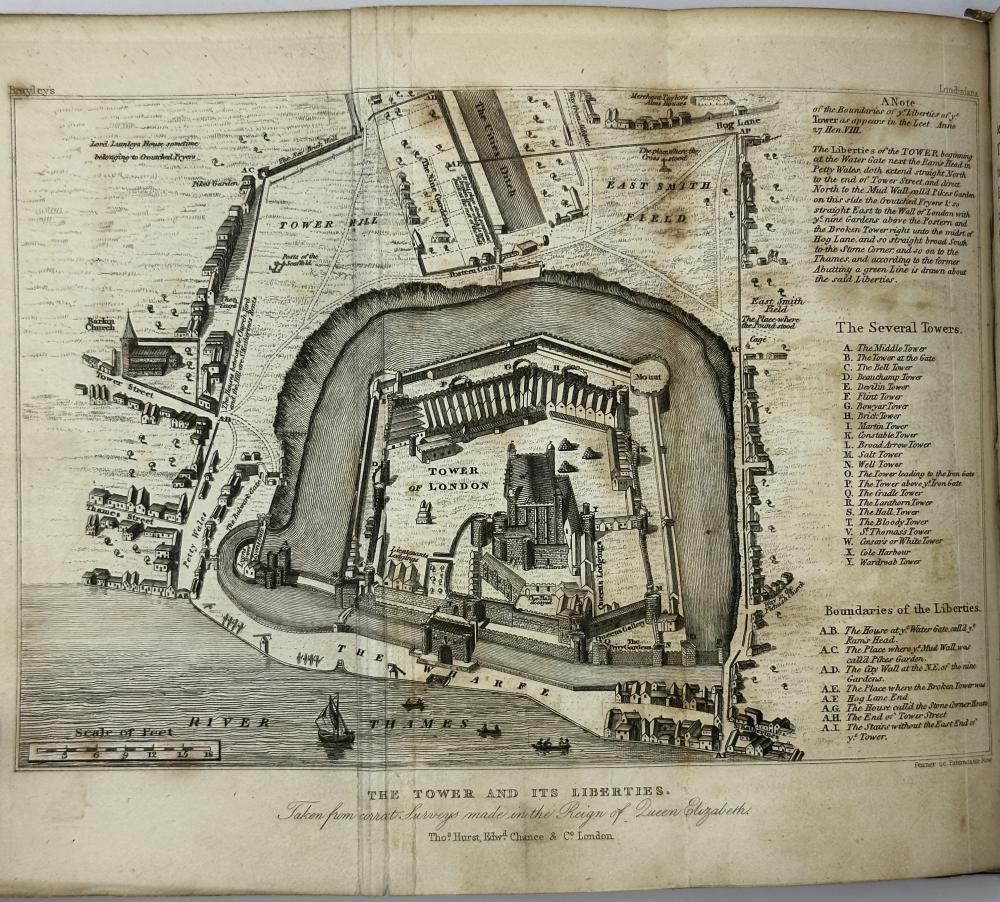 Brayley's
Londiniana
Lord Lumleys House sometime
belonging to Croutched Fryers
The New Brick Wall
AC
Pikes Garden
TOWER HILL
Posts of the
Scaffold
AD
The Nine Gardens
The Town Ditch
AE
Postern Gate
Merchant Taylors
Alms Houses
Hog Lane
AF
The place where the
Cross stood
EAST SMITH
FIELD
East Smith
Field
The Place where
the Pound stood
Cage
Barkin
Church
Tower Street
AH
Thames Street
Petty Wales
The Bulwark Gate
Mount
G
H
TOWER
OF LONDON
Lieutenants
Queens Lodgings
Queens Gallery
The
Privy Gardens
THE WHARFE
RIVER THAMES
Scale of Feet
3 6 9 12 15 18
A Note
of the Boundaries of yᵉ Liberties of yᵉ
Tower as appears in the Leet. Anno
27 Hen. VIII.
The Liberties of the TOWER beginning
at the Water Gate next the Ram's Head in
Petty Wales, doth extend straight North
to the end of Tower Street, and direct
North to the Mud Wall call'd Pikes Garden
on this side the Croutched Fryers & so
straight East to the Wall of London with
yᵉ nine Gardens above the Postern, and
the Broken Tower right unto the midst of
Hog Lane, and so straight broad South
to the Stone Corner, and so on to the
Thames, and according to the former
Abutting a green Line is drawn about
the said Liberties.
The Several Towers.
A. The Middle Tower
B. The Tower at the Gate
C. The Bell Tower
D. Beauchamp Tower
E. Devilin Tower
F. Flint Tower
G. Bowyar Tower
H. Brick Tower
I. Martin Tower
K. Constable Tower
L. Broad Arrow Tower
M. Salt Tower
N. Well Tower
O. The Tower leading to the Iron Gate
P. The Tower above yᵉ Iron Gate
Q. The Cradle Tower
R. The Lanthorn Tower
S. The Hall Tower
T. The Bloody Tower
V. Sᵗ Thomas's Tower
W. Cæsar's or White Tower
X. Cole Harbour
Y. Wardroab Tower
Boundaries of the Liberties.
A.B. The House at yᵉ Water Gate, call'd yᵉ
Ram's Head.
A.C. The Place where yᵉ Mud Wall was
call'd Pikes Garden.
A.D. The City Wall at the N.E. of the nine
Gardens.
A.E. The Place where the Broken Tower was
A.F. Hog Lane End
A.G. The House call'd the Stone Corner House
A.H. The End of Tower Street
A.I. The Stairs without the East End of
yᵉ Tower.
THE TOWER AND ITS LIBERTIES.
Taken from corrat. Surveys made in the Reign of Queen Elizabeth.
Thoˢ Hurst, Edwᵈ Chance & Cº London